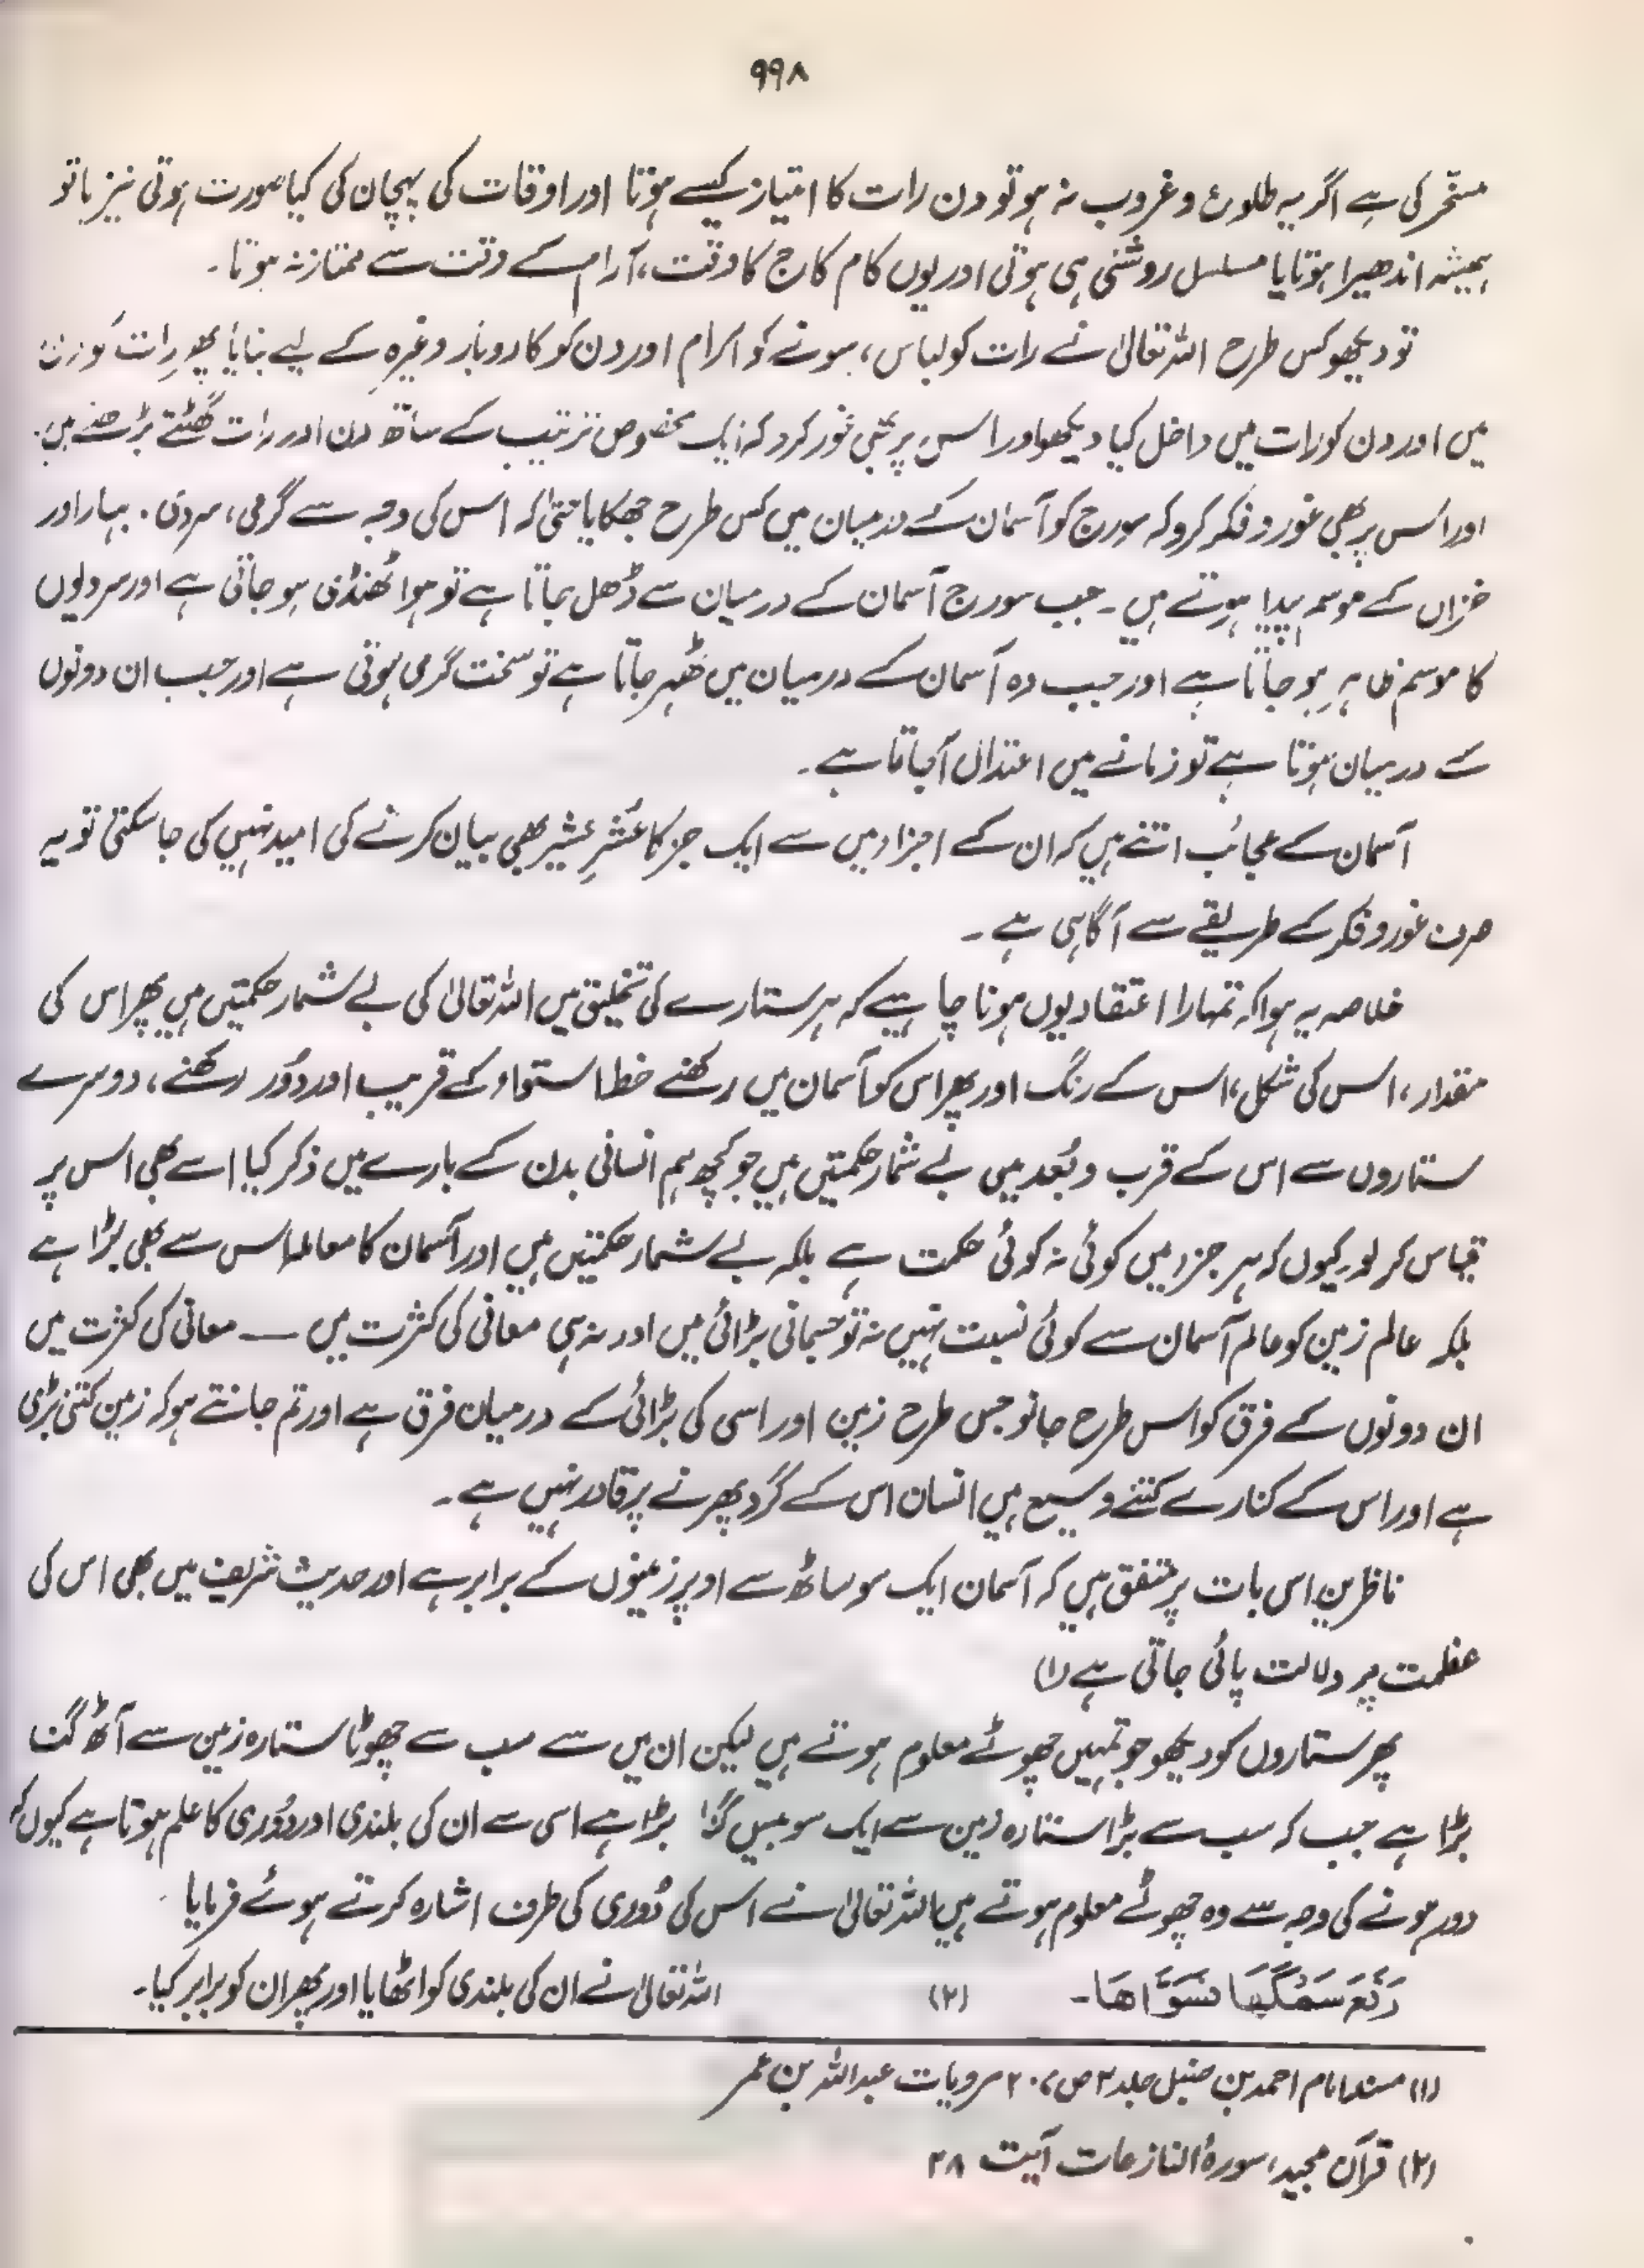 ۹۹۸
مسخّر کی ہے اگر یہ طلوع و غروب نہ ہو تو دن رات کا امتیاز کیسے ہوتا اور اوقات کی پہچان کی کیا صورت ہوتی نیز یا تو
ہمیشہ اندھیرا ہوتا یا مسلسل روشنی ہی ہوتی اور یوں کام کاج کا وقت، آرام کے وقت سے ممتاز نہ ہوتا۔
تو دیکھو کس طرح اللہ تعالیٰ نے رات کو لباس، سونے کو آرام اور دن کو کاروبار وغیرہ کے لیے بنایا پھر رات کو دن
میں اور دن کو رات میں داخل کیا دیکھو اور اس پر بھی غور کرو کہ ایک مخصوص ترتیب کے ساتھ دن اور رات گھٹتے بڑھتے ہیں۔
اور اس پر بھی غور و فکر کرو کہ سورج کو آسمان کے درمیان میں کس طرح جھکایا حتیٰ کہ اس کی وجہ سے گرمی، سردی، بہار اور
خزاں کے موسم پیدا ہوتے ہیں۔ جب سورج آسمان کے درمیان سے ڈھل جاتا ہے تو ہوا ٹھنڈی ہو جاتی ہے اور سردیوں
کا موسم ظاہر ہو جاتا ہے اور جب وہ آسمان کے درمیان میں ٹھہر جاتا ہے تو سخت گرمی ہوتی ہے اور جب ان دونوں
کے درمیان ہوتا ہے تو زمانے میں اعتدال آجاتا ہے۔
آسمان کے عجائب اتنے ہیں کہ ان کے اجزاء میں سے ایک جز کا عُشرِ عشیر بھی بیان کرنے کی امید نہیں کی جا سکتی تو یہ
صرف غور و فکر کے طریقے سے آگاہی ہے۔
خلاصہ یہ ہوا کہ تمہارا اعتقاد یوں ہونا چاہیے کہ ہر ستارے کی تخلیق میں اللہ تعالیٰ کی بے شمار حکمتیں ہیں پھر اس کی
مقدار، اس کی شکل، اس کے رنگ اور پھر اس کو آسمان میں رکھنے خط استواء کے قریب اور دُور رکھنے، دوسرے
ستاروں سے اس کے قرب و بُعد میں بے شمار حکمتیں ہیں جو کچھ ہم انسانی بدن کے بارے میں ذکر کیا اسے بھی اس پر
قیاس کر لو کیوں کہ ہر جزء میں کوئی نہ کوئی حکمت ہے بلکہ بے شمار حکمتیں ہیں اور آسمان کا معاملہ اس سے بھی بڑا ہے
بلکہ عالم زمین کو عالم آسمان سے کوئی نسبت نہیں نہ تو جسمانی بڑائی میں اور نہ ہی معانی کی کثرت میں — معانی کی کثرت میں
ان دونوں کے فرق کو اس طرح جانو جس طرح زمین اور اسی کی بڑائی کے درمیان فرق ہے اور تم جانتے ہو کہ زمین کتنی بڑی
ہے اور اس کے کنارے کتنے وسیع ہیں انسان اس کے گرد پھرنے پر قادر نہیں ہے۔
ناظرین اس بات پر متفق ہیں کہ آسمان ایک سو ساٹھ سے اوپر زمینوں کے برابر ہے اور حدیث شریف میں بھی اس کی
عظمت پر دلالت پائی جاتی ہے (۱)
پھر ستاروں کو دیکھو جو تمہیں چھوٹے معلوم ہوتے ہیں لیکن ان میں سے سب سے چھوٹا ستارہ زمین سے آٹھ گنا
بڑا ہے جب کہ سب سے بڑا ستارہ زمین سے ایک سو بیس گنا بڑا ہے اسی سے ان کی بلندی اور دُوری کا علم ہوتا ہے کیوں کہ
دور ہونے کی وجہ سے وہ چھوٹے معلوم ہوتے ہیں اللہ تعالیٰ نے اس کی دُوری کی طرف اشارہ کرتے ہوئے فرمایا
رَفَعَ سَمْكَهَا فَسَوَّاهَا۔ (۲) اللہ تعالیٰ نے ان کی بلندی کو اٹھایا اور پھر ان کو برابر کیا۔
(۱) مسند امام احمد بن حنبل جلد ۲ ص ۲۰۷ مرویات عبداللہ بن عمر
(۲) قرآن مجید، سورۂ النازعات آیت ۲۸